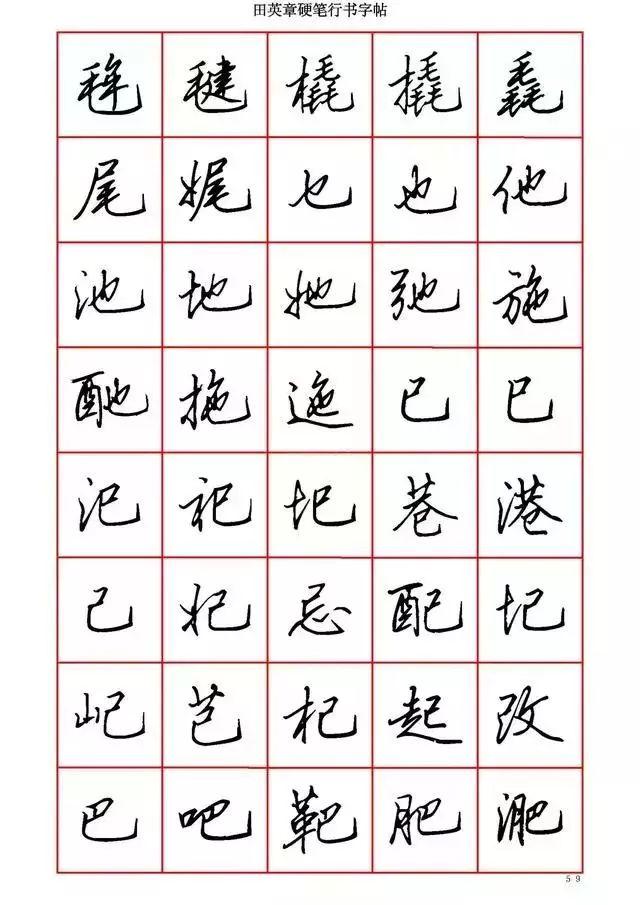 田英章硬笔行书字帖
毪 毽 橇 撬 毳
尾 娓 乜 也 他
池 地 她 弛 施
酏 拖 迤 已 巳
汜 祀 圯 巷 港
己 妃 忌 配 圮
屺 芑 杞 起 改
巴 吧 靶 肥 淝
59